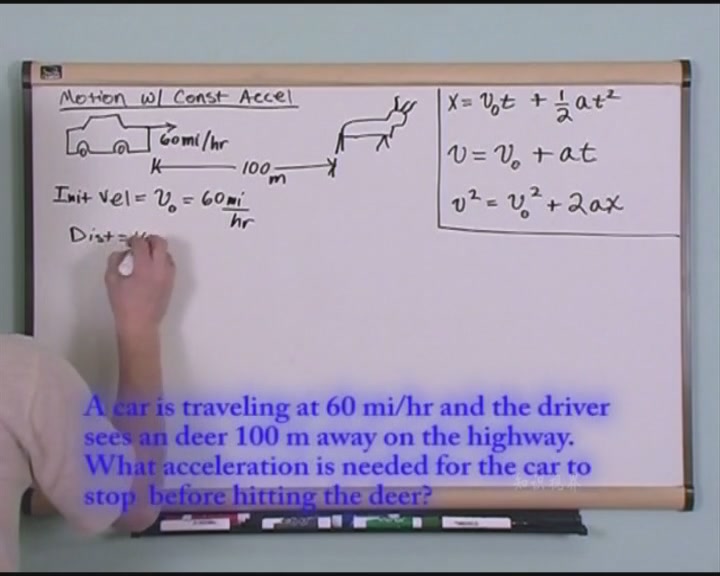 Motion w/ Const Accel
60mi/hr
100 m
Init Vel = v₀ = 60 mi/hr
Dist =
x = v₀t + ½ at²
v = v₀ + at
v² = v₀² + 2ax
A car is traveling at 60 mi/hr and the driver
sees an deer 100 m away on the highway.
What acceleration is needed for the car to
stop before hitting the deer?